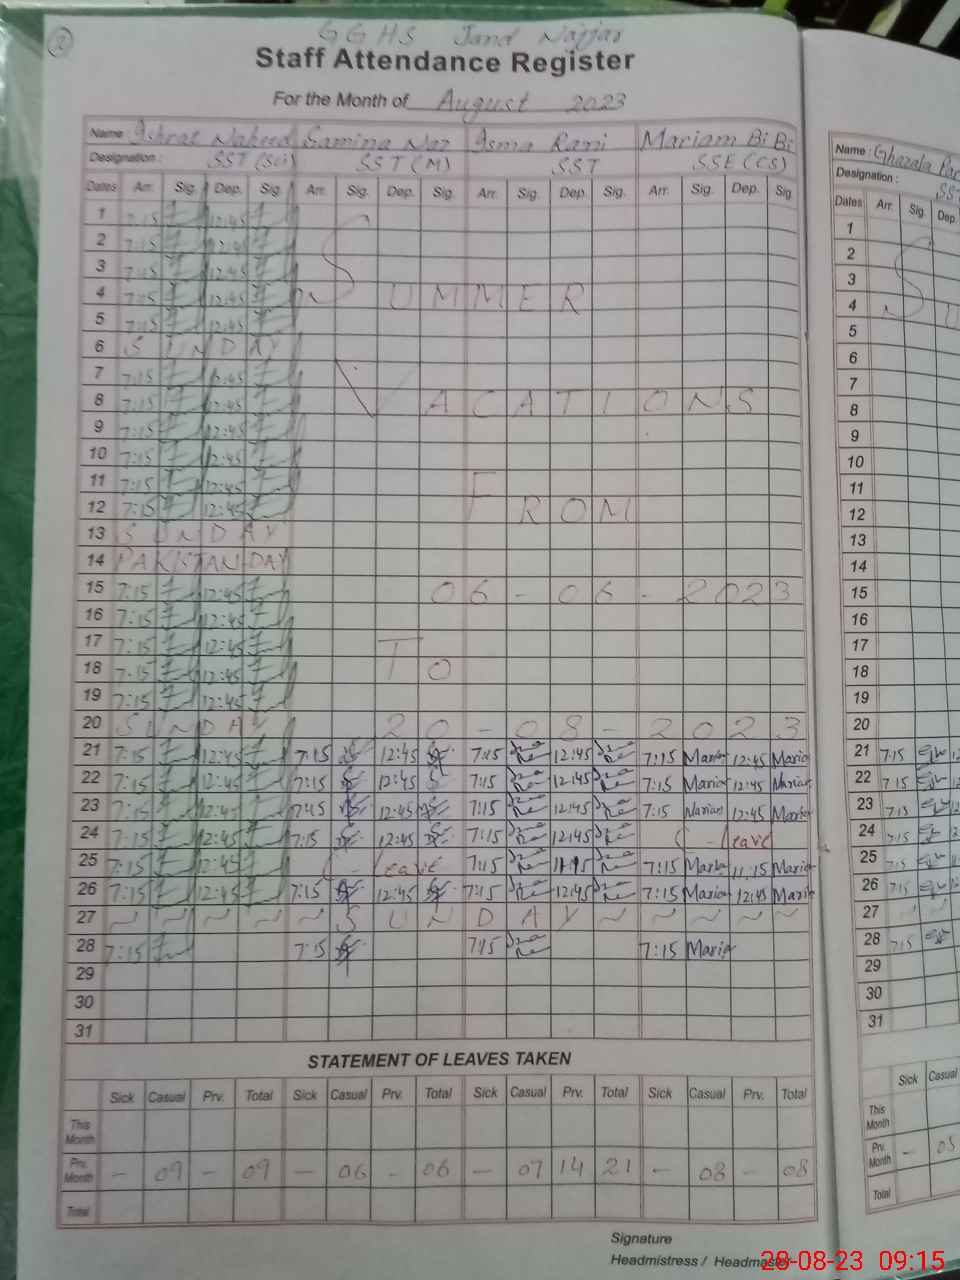 2
GGHS Jand Najjar
Staff Attendance Register
For the Month of August 2023
Name : Ishrat Naheed Samina Naz Isma Rani Mariam Bi Bi
Designation : SST (Sci) SST (M) SST SSE (CS)
Dates Arr. Sig. Dep. Sig. Arr. Sig. Dep. Sig. Arr. Sig. Dep. Sig. Arr. Sig. Dep. Sig.
1 7:15 12:45
2 7:15 12:45
3 7:15 12:45
4 7:15 12:45 SUMMER
5 7:15 12:45
6 SUNDAY
7 7:15 12:45
8 7:15 12:45 VACATIONS
9 7:15 12:45
10 7:15 12:45
11 7:15 12:45
12 7:15 12:45 FROM
13 SUNDAY
14 PAKISTAN DAY
15 7:15 12:45 06-06-2023
16 7:15 12:45
17 7:15 12:45
18 7:15 12:45 To
19 7:15 12:45
20 SUNDAY 20-08-2023
21 7:15 12:45 7:15 12:45 7:15 12:45 7:15 Maria 12:45 Maria
22 7:15 12:45 7:15 12:45 7:15 12:45 7:15 Maria 12:45 Maria
23 7:15 12:45 7:15 12:45 7:15 12:45 7:15 Maria 12:45 Maria
24 7:15 12:45 7:15 12:45 7:15 12:45 C - Leave
25 7:15 12:45 C - Leave 7:15 11:15 7:15 Maria 11:15 Maria
26 7:15 12:45 7:15 12:45 7:15 12:45 7:15 Maria 12:45 Maria
27 ~ ~ ~ ~ ~ SUNDAY ~ ~ ~ ~ ~
28 7:15 7:15 7:15 7:15 Maria
29
30
31
STATEMENT OF LEAVES TAKEN
Sick Casual Prv. Total Sick Casual Prv. Total Sick Casual Prv. Total Sick Casual Prv. Total
This Month
Prv. Month - 09 - 09 - 06 - 06 - 07 14 21 - 08 - 08
Total
Signature
Headmistress / Headmaster
Name : Ghazala
Designation : SS
Dates Arr. Sig. Dep.
1
2
3
4 SU
5
6
7
8
9
10
11
12
13
14
15
16
17
18
19
20
21 7:15
22 7:15
23 7:15
24 7:15
25 7:15
26 7:15
27
28 7:15
29
30
31
Sick Casual
This Month
Prv. Month - 05
Total
28-08-23 09:15